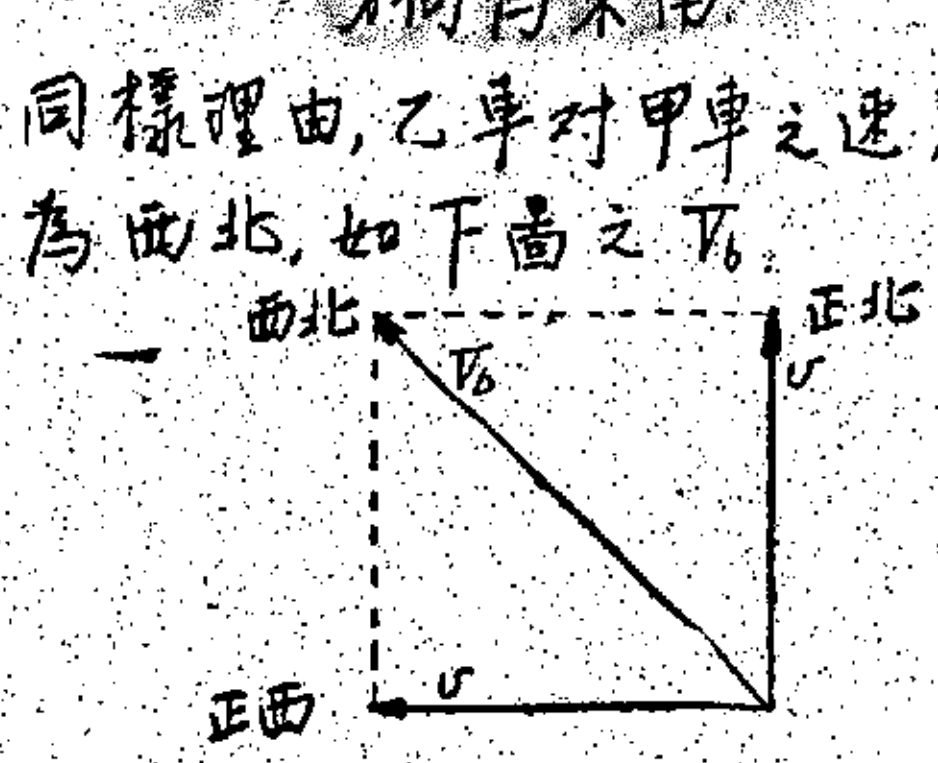 同樣理由,乙車对甲車之速
為西北,如下畐之 V_b.
西北 正北
V_b υ
正西 υ